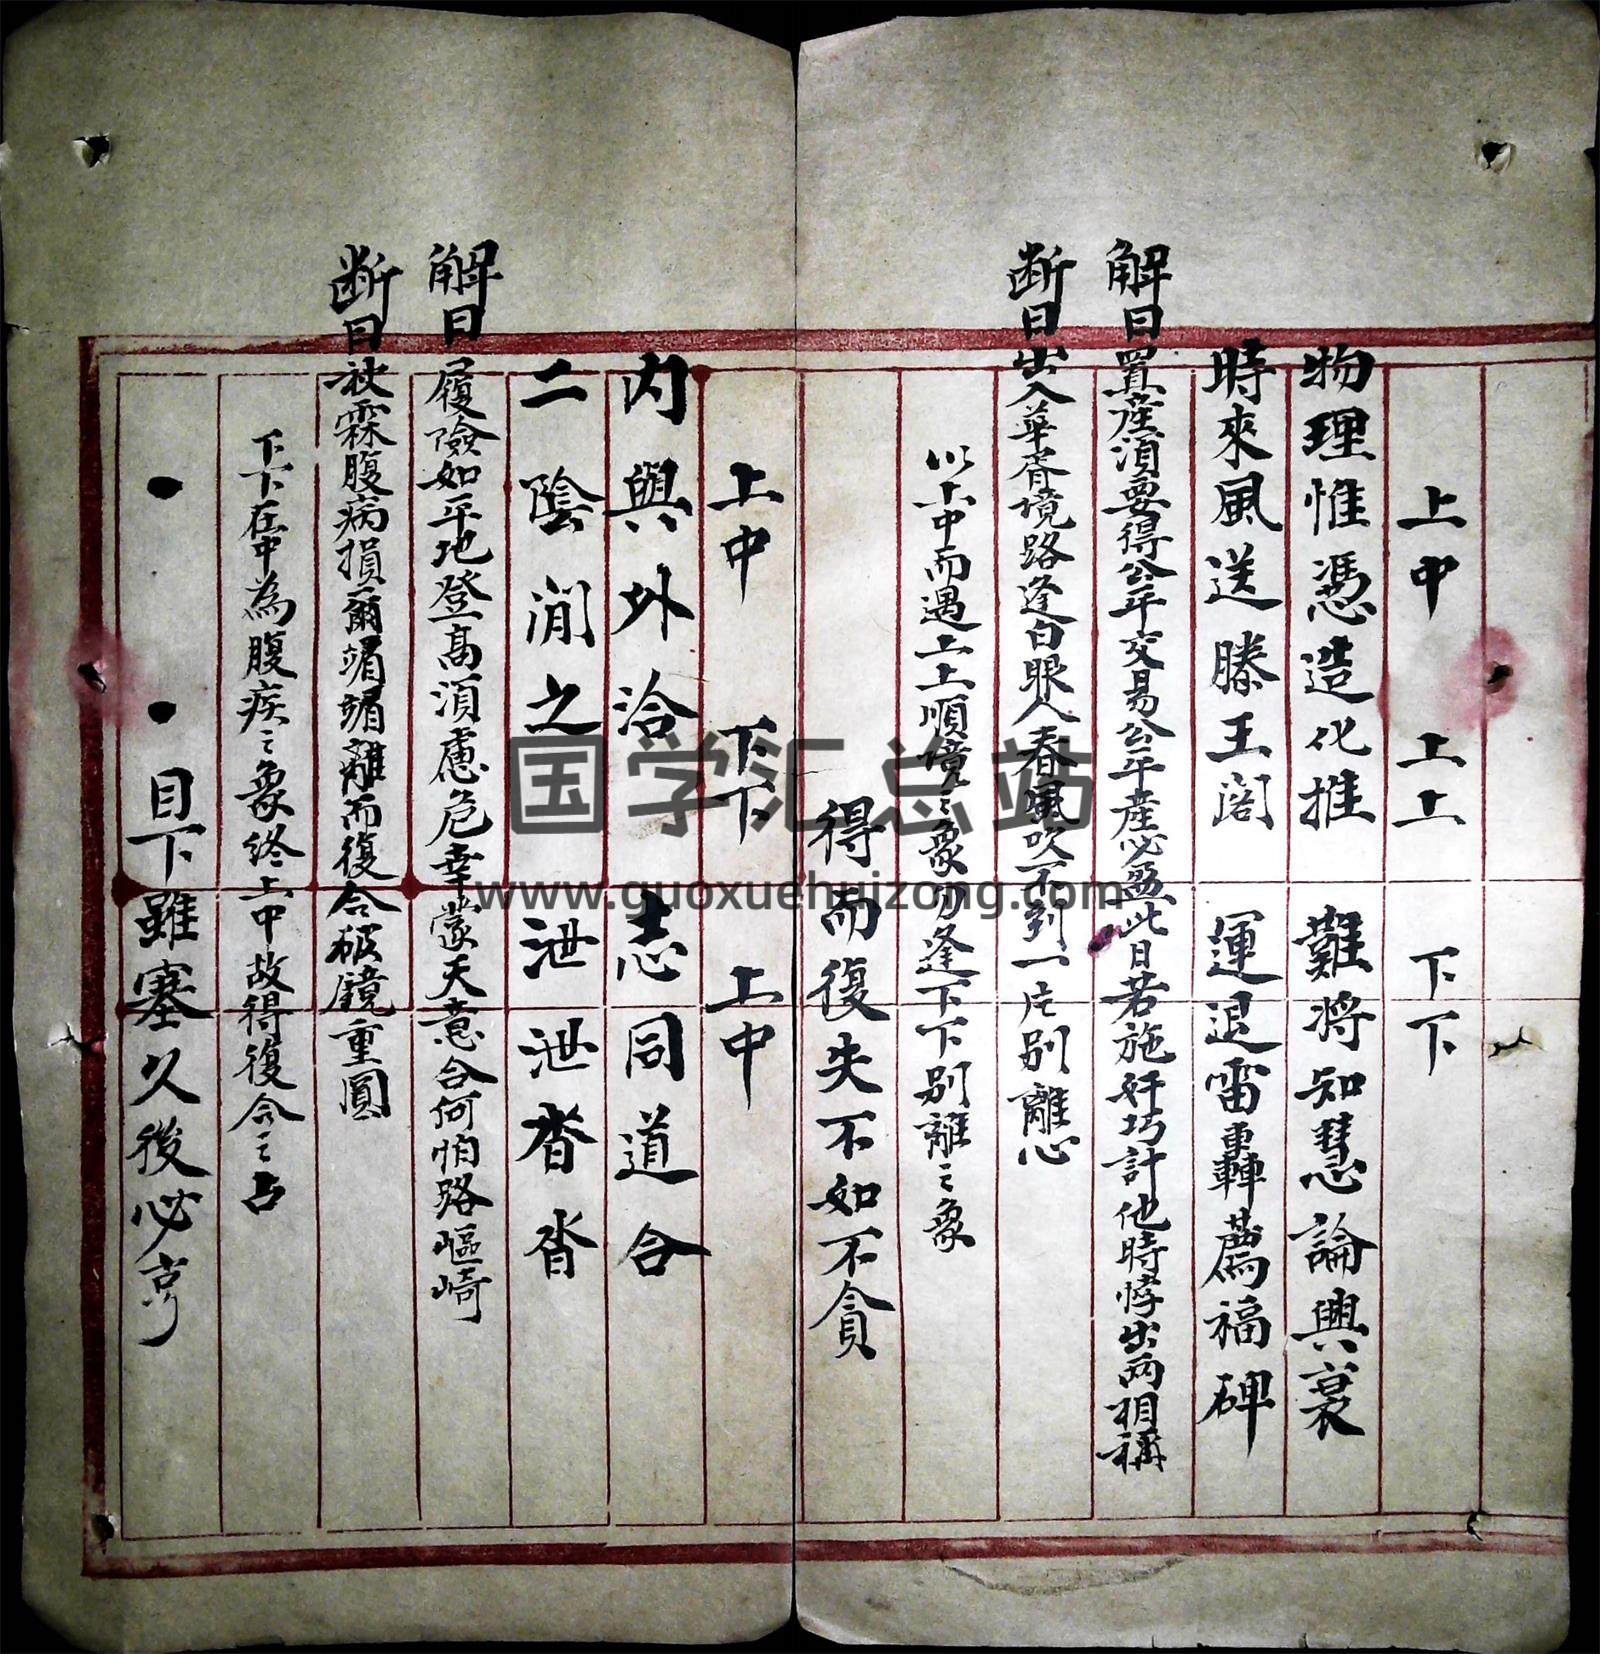 上中 上上 下下
物理惟憑造化推 難將知慧論興衰
時來風送滕王阁 運退雷轟薦福碑
解曰置産須要得公平交易公平産必盈此日若施奸巧計他時悖出两相稱
断曰出入華胥境路逢白眼人春風吹不到一片别離心
以上中而遇上上順境之象乃逢下下别離之象
得而復失不如不貪
上中 下下 上中
内與外洽 志同道合
二陰間之 泄泄沓沓
解曰履險如平地登高須慮危幸蒙天意合何怕路嶇崎
断曰被霖腹病損離而復合破鏡重圓
下下在中為腹疾之象終上中故得復合之占
目下雖塞久後必亨
国学汇总站
www.guoxuehuizong.com